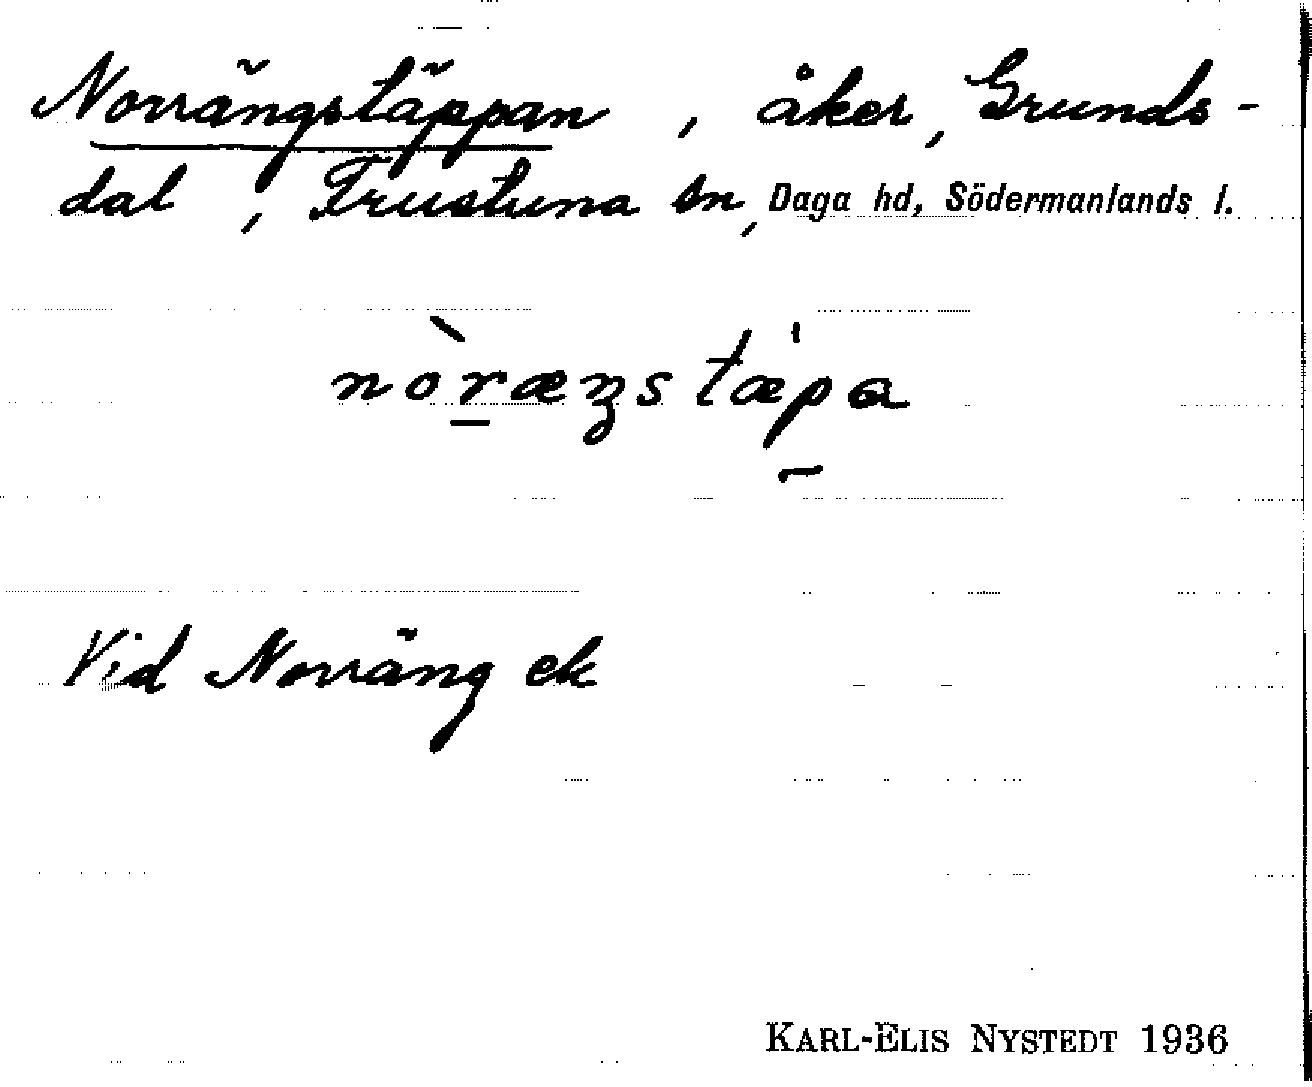 Norrängstäppan, åker, Grunds-
dal, Frustuna sn, Daga hd, Södermanlands l.
nòræŋstæ̍pa
Vid Norräng ek
KARL-ELIS NYSTEDT 1936